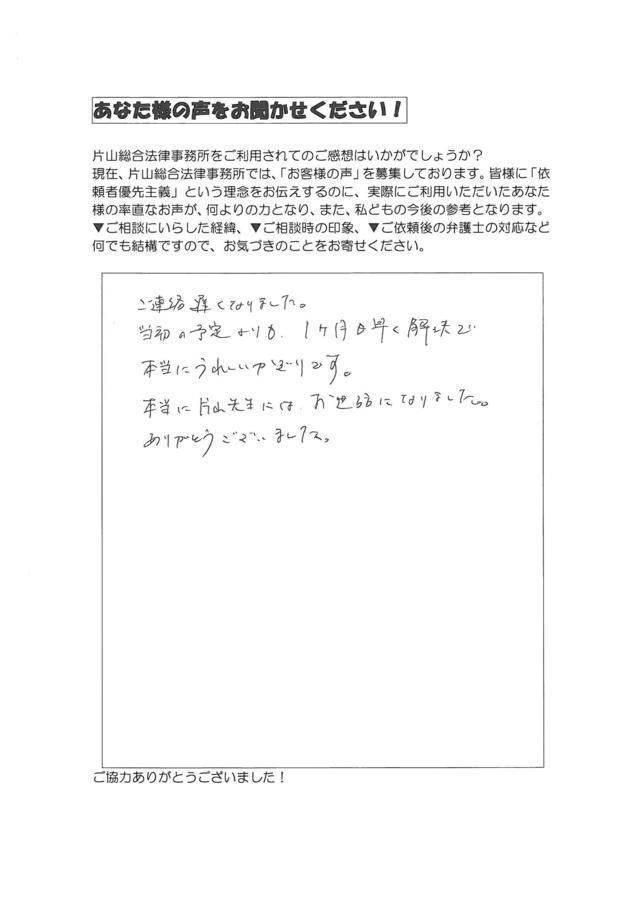 あなた様の声をお聞かせください！
片山総合法律事務所をご利用されてのご感想はいかがでしょうか？
現在、片山総合法律事務所では、「お客様の声」を募集しております。皆様に「依
頼者優先主義」という理念をお伝えするのに、実際にご利用いただいたあなた
様の率直なお声が、何よりの力となり、また、私どもの今後の参考となります。
▼ご相談にいらした経緯、▼ご相談時の印象、▼ご依頼後の弁護士の対応など
何でも結構ですので、お気づきのことをお寄せください。
ご連絡遅くなりました。
当初の予定よりも、1ヶ月も早く解決で
本当にうれしいかぎりです。
本当に片山先生には、お世話になりました。
ありがとうございました。
ご協力ありがとうございました！